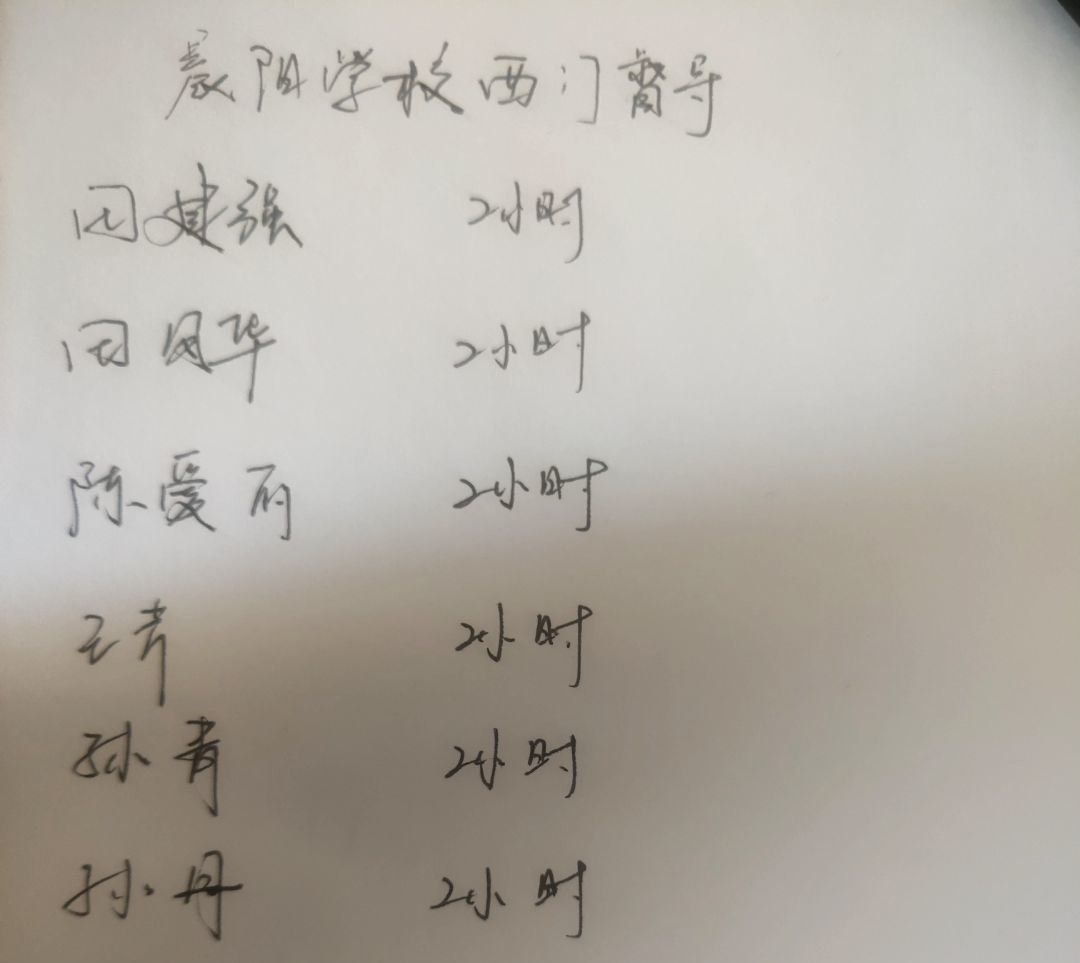 晨阳学校西门督导
田建强 2小时
田国华 2小时
陈爱丽 2小时
王青 2小时
孙青 2小时
孙丹 2小时